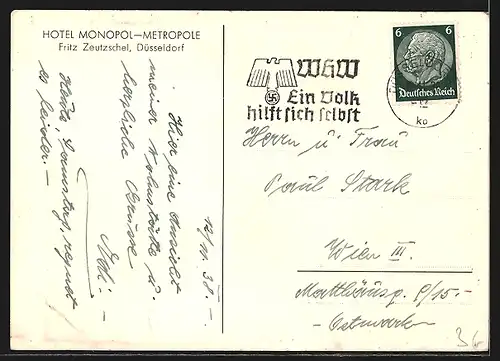 HOTEL MONOPOL—METROPOLE
Fritz Zeutzschel, Düsseldorf
12/11. 38. –
Hier eine Ansicht
meiner Wohnstätte u.
herzliche Grüsse
Heute, Sonntag, regnet
es leider. –
WHW
Ein Volk
hilft sich selbst
6 6
Deutsches Reich
ko
Herrn u. Frau
Paul Stark
Wien III.
Matthäusg. 9/15. –
– Ostmark –